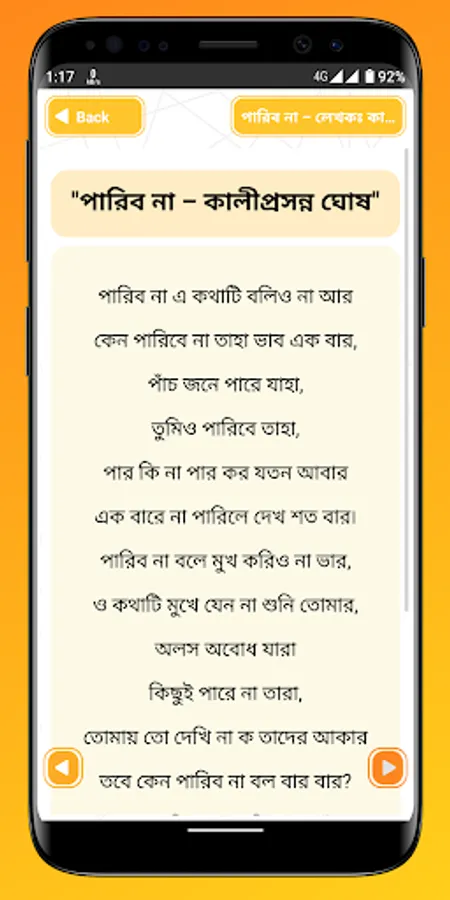 1:17
4G
92%
Back
পারিব না – লেখকঃ কা...
"পারিব না – কালীপ্রসন্ন ঘোষ"
পারিব না এ কথাটি বলিও না আর
কেন পারিবে না তাহা ভাব এক বার,
পাঁচ জনে পারে যাহা,
তুমিও পারিবে তাহা,
পার কি না পার কর যতন আবার
এক বারে না পারিলে দেখ শত বার।
পারিব না বলে মুখ করিও না ভার,
ও কথাটি মুখে যেন না শুনি তোমার,
অলস অবোধ যারা
কিছুই পারে না তারা,
তোমায় তো দেখি না ক তাদের আকার
তবে কেন পারিব না বল বার বার?